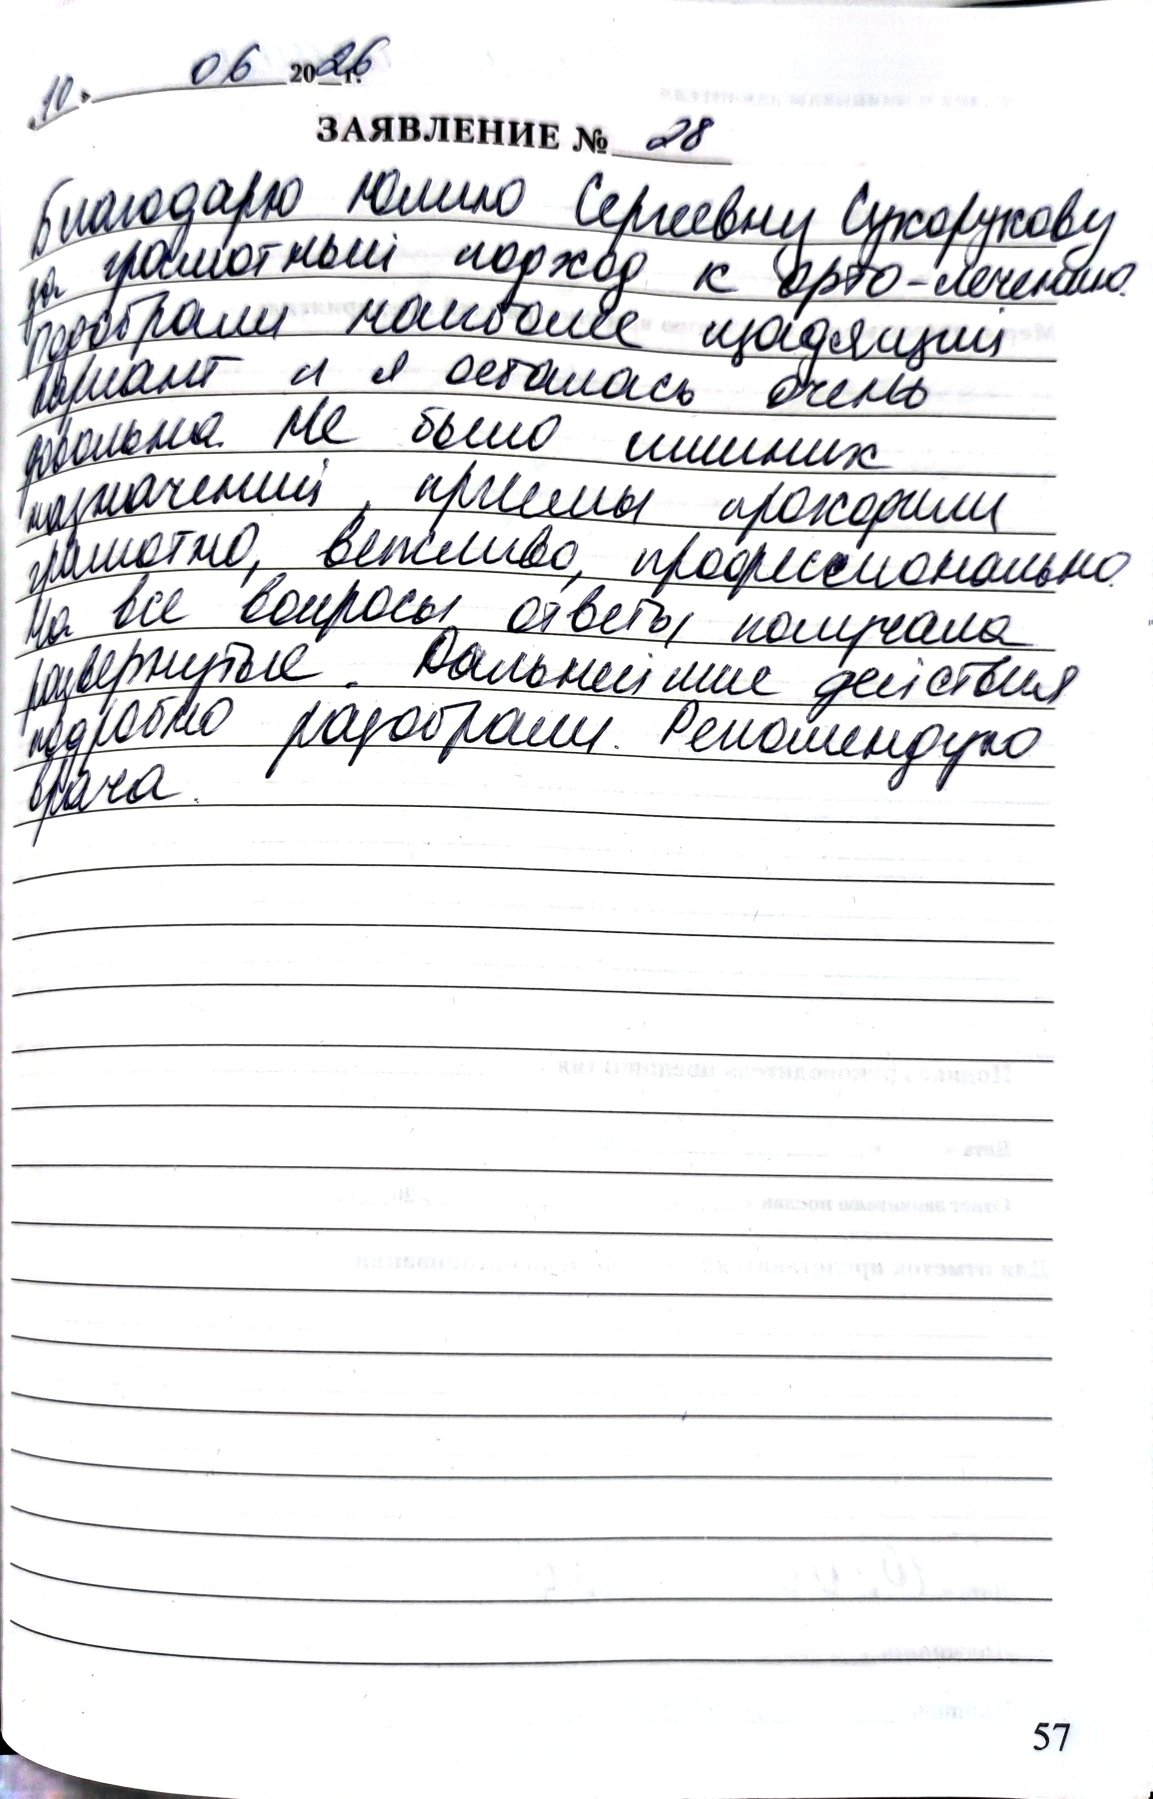 «10» 06 2026 г.
ЗАЯВЛЕНИЕ № 28
Благодарю Юлию Сергеевну Сухорукову
за грамотный подход к орто-лечению.
Подобрали наиболее щадящий
вариант и я осталась очень
довольна. Не было лишних
назначений, приемы проходили
грамотно, вежливо, профессионально.
На все вопросы ответы получала
развернутые. Дальнейшие действия
подробно разобрали. Рекомендую
врача.
57